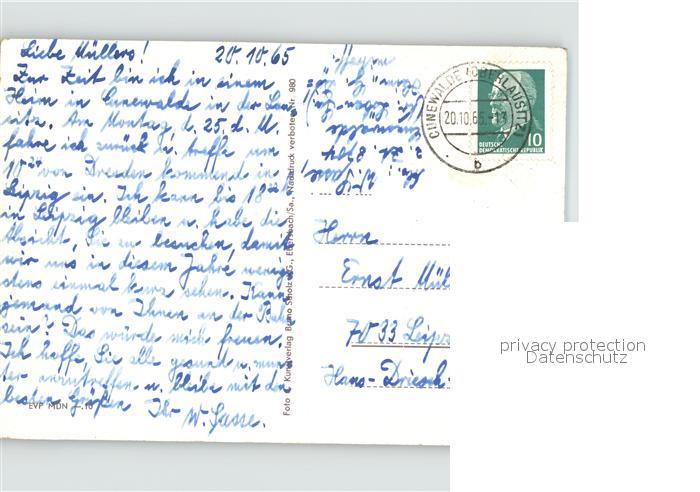 Liebe Müllers! 20.10.65
Zur Zeit bin ich in einem
Heim in Cunewalde in der Lau
sitz. Am Montag, d. 25. d. M.
fahre ich zurück u. treffe um
von Dresden kommend in
Leipzig ein. Ich kann bis 18
in Leipzig bleiben u. habe die
Absicht, Sie zu besuchen, damit
wir uns in diesem Jahre wenig
stens einmal kurz sehen. Kann
jemand von Ihnen an der Bahn
sein? Das würde mich freuen.
Ich hoffe, Sie alle gesund u. mun
ter anzutreffen u. bleibe mit den
besten Grüßen
Ihr W. Sasse.
EVP MDN -.10
Foto u. Kunstverlag Bruno Scholze KG., Ebersbach/Sa., Nachdruck verboten Nr. 980
Cunewalde
z. Zt.
CUNEWALDE (OBERLAUSITZ)
20.10.65.-13
b
10
DEUTSCHE
DEMOKRATISCHE REPUBLIK
Herrn
Ernst Mül
7033 Leipz
Hans-Driesch-
privacy protection
Datenschutz